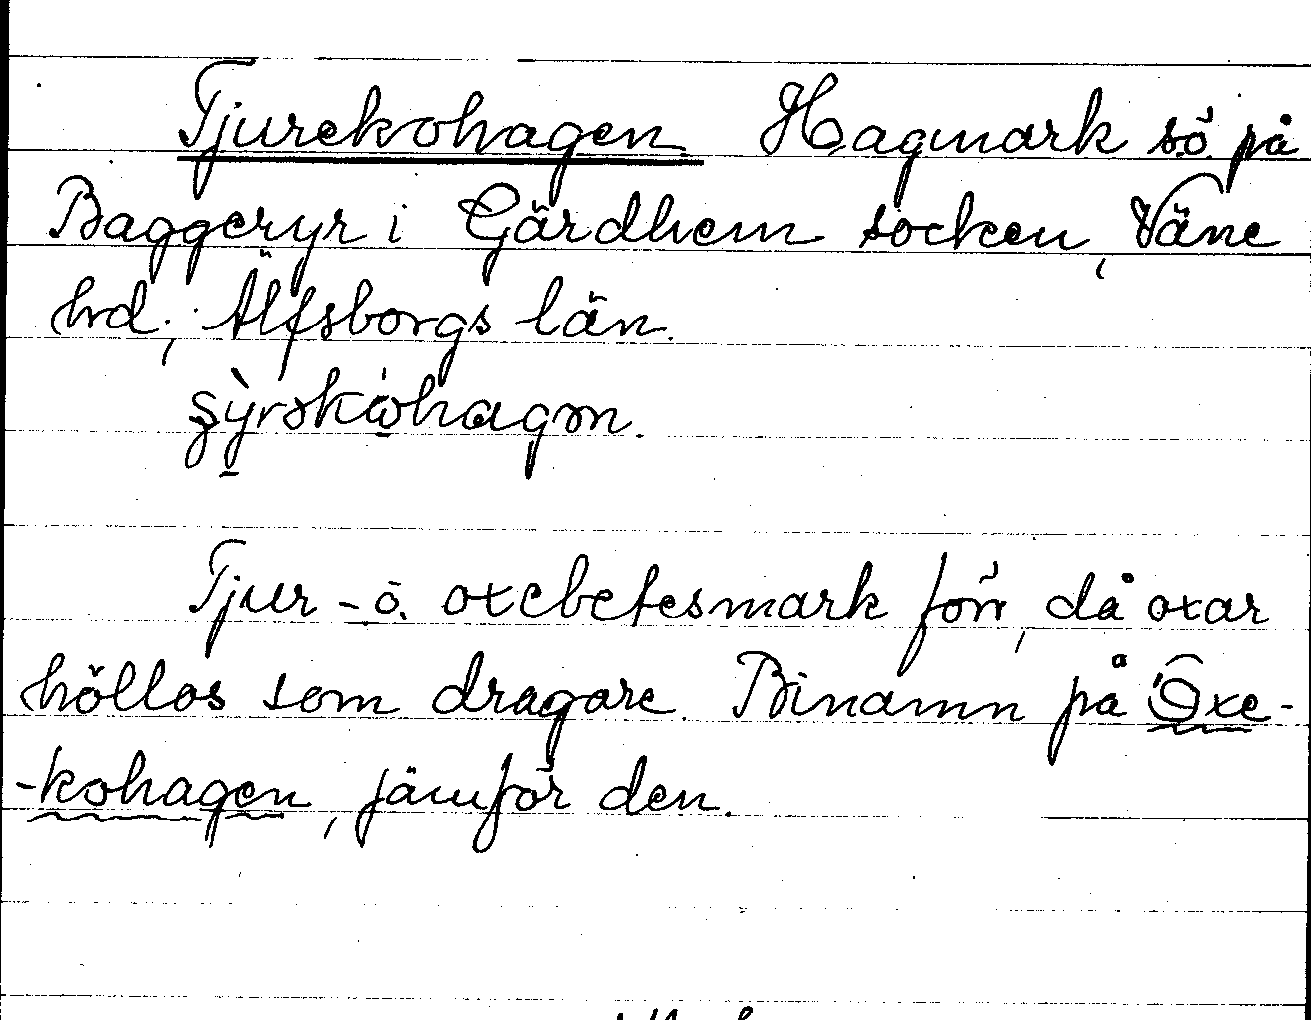 Tjurekohagen. Hagmark sö på
Baggeryr i Gärdhem socken, Väne
hrd., Älfsborgs län.
Tjur- o. oxebetesmark förr, då oxar
höllos som dragare. Binamn på Oxe-
-kohagen, jämför den.